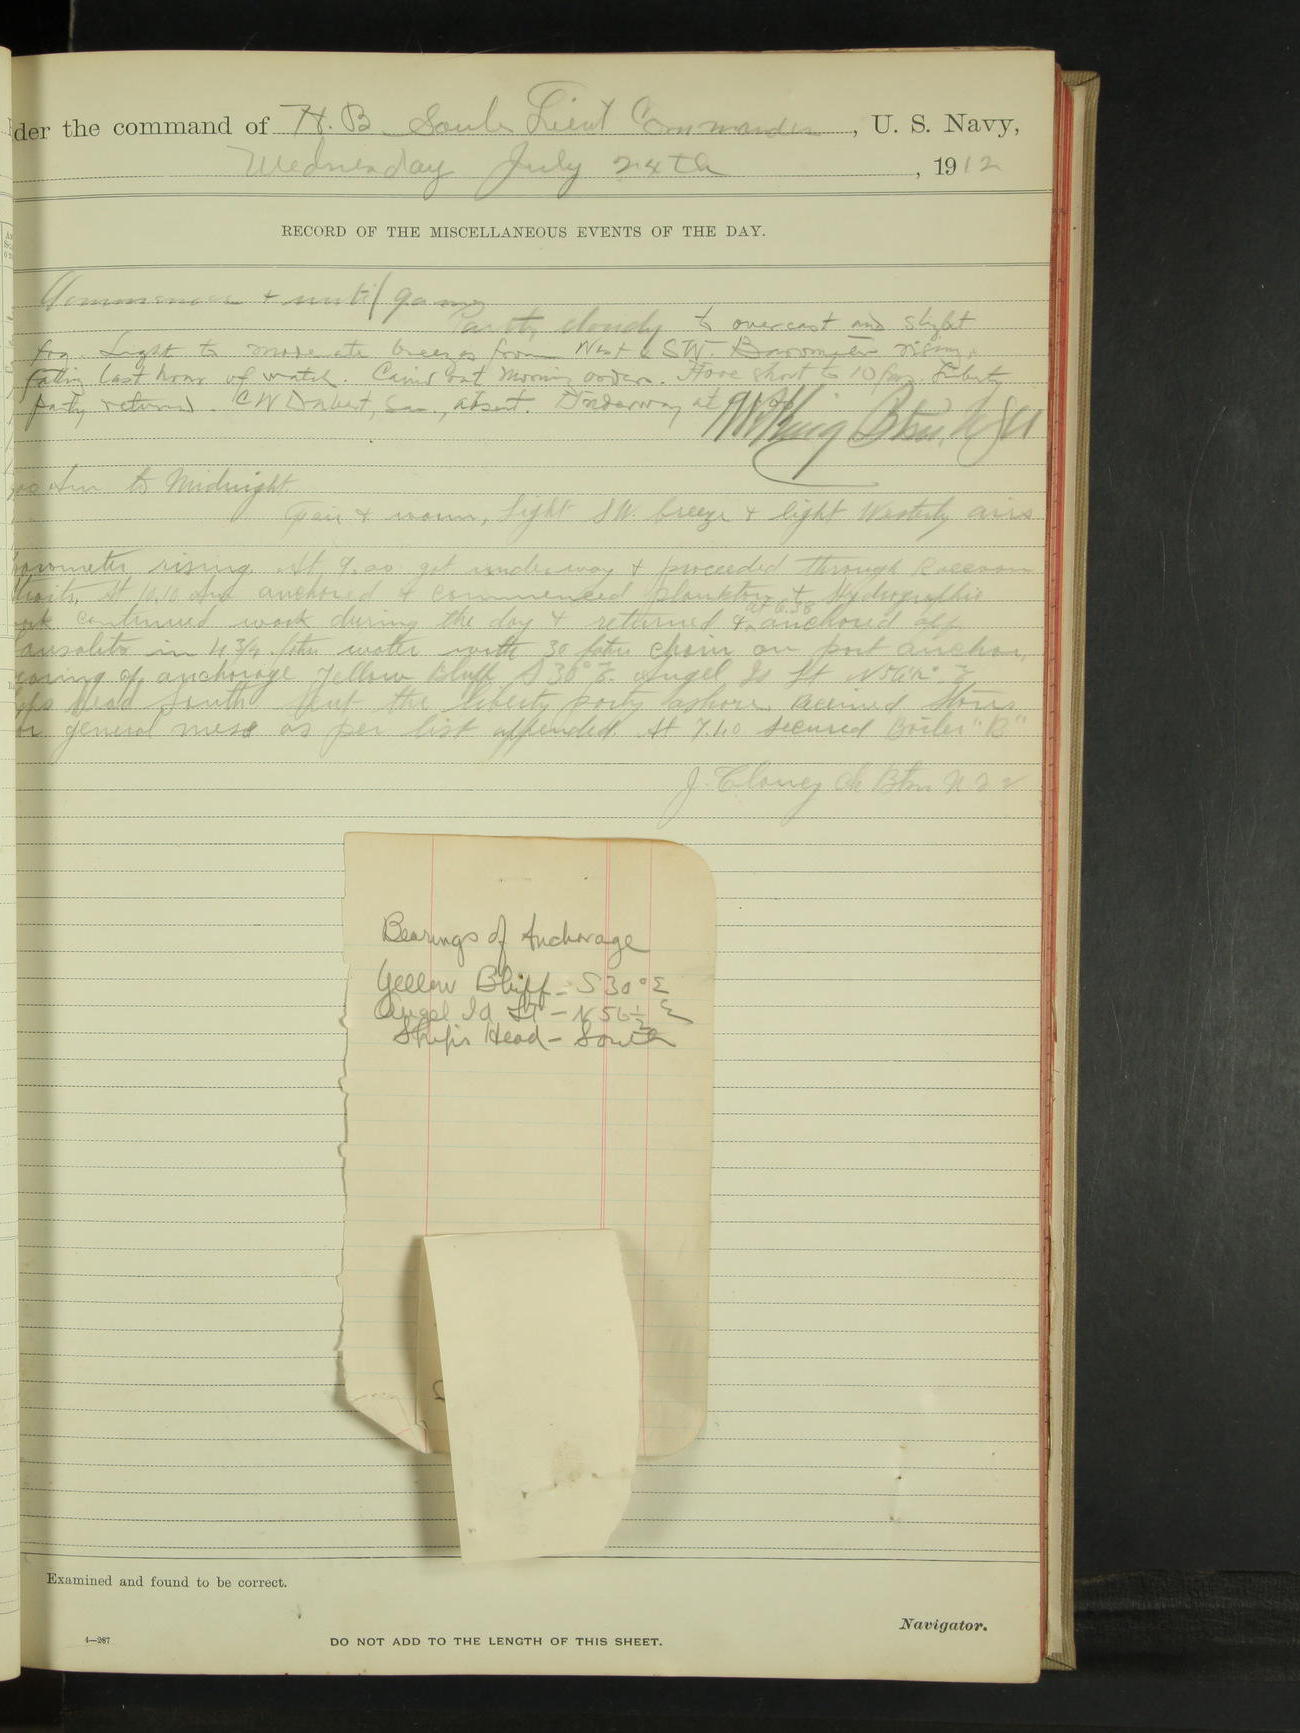 der the command of H. B. Soule Lieut Commander, U. S. Navy,
Wednesday July 24th, 1912
RECORD OF THE MISCELLANEOUS EVENTS OF THE DAY.
Commences & until 9 am
Partly cloudy to overcast and slight
fog. Light to moderate breezes from West & SW. Barometer rising,
falling last hour of watch. Carried out morning orders. Hove short to 10 fms. Liberty
party returned. C W absent. Underway at
Am to Midnight
Fair & warm, light SW. breeze & light Westerly airs
barometer rising. At 9.00 got underway & proceeded through Raccoon
Straits. At 10.10 Am anchored & commenced plankton & Hydrographic
work continued work during the day & returned & at 6.38 anchored off
Sausalito in 4 3/4 fthm water with 30 fthm chain on port anchor,
bearing of anchorage Yellow Bluff S 30° E. Angel Is Lt N 56½° E
Ships Head South Sent the liberty party ashore received stores
for general mess as per list appended. At 7.40 secured Boiler "B"
J. Clancy Ch Btsn U S N
Bearings of Anchorage
Yellow Bluff - S 30° E
Angel Id Lt - N 56½ E
Ship's Head - South
Examined and found to be correct.
Navigator.
4—267
DO NOT ADD TO THE LENGTH OF THIS SHEET.